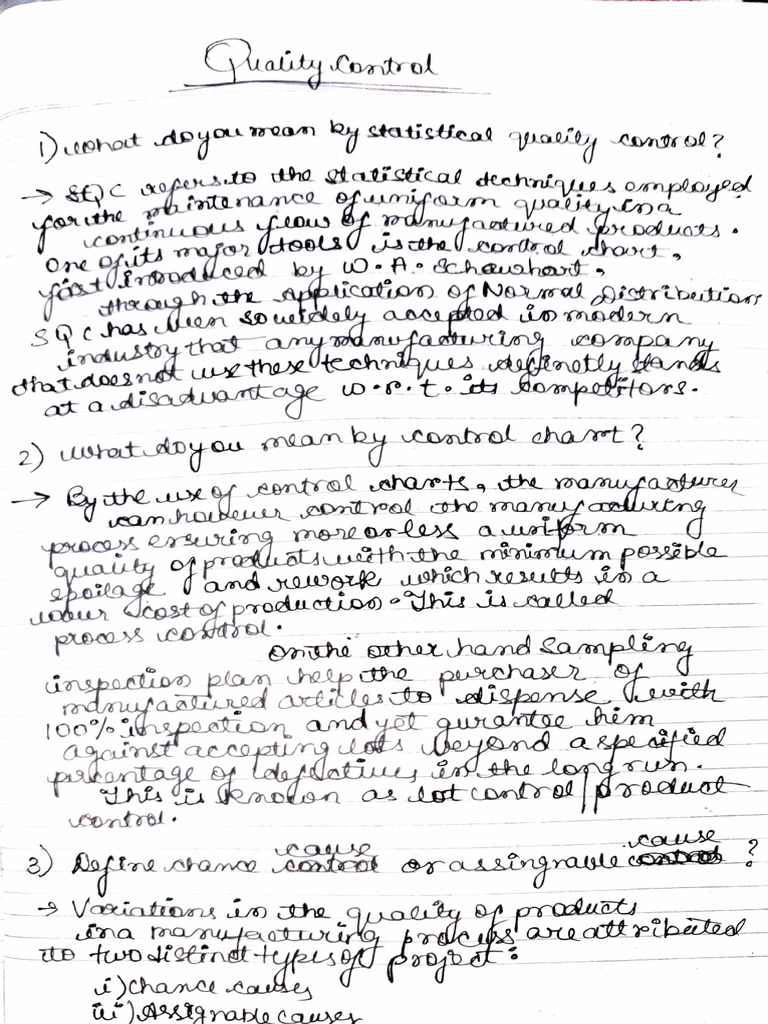 Quality control
1) What do you mean by statistical quality control?
→ SQC refers to the statistical techniques employed
for the maintenance of uniform quality in a
continuous flow of manufactured products.
One of its major tools is the control chart,
first introduced by W.A. Schewhart,
through the application of Normal Distribution
SQC has been so widely accepted in modern
industry that any manufacturing company
that does not use these techniques definetly stands
at a disadvantage w.r.t. its competitors.
2) What do you mean by control chart?
→ By the use of control charts, the manufacturer
can however control the manufacturing
process ensuring more or less a uniform
quality of products with the minimum possible
spoilage and rework which results in a
lower cost of production. This is called
process control.
On the other hand sampling
inspection plan help the purchaser of
manufactured articles to dispense with
100% inspection and yet gurantee him
against accepting lots beyond a specified
percentage of defectives in the long run.
This is known as lot control / product
control.
3) Define chance cause or assingnable cause ?
→ Variations in the quality of products
in a manufacturing process are attributed
to two distinct types of project:
i) Chance causes
ii) Assignable causes